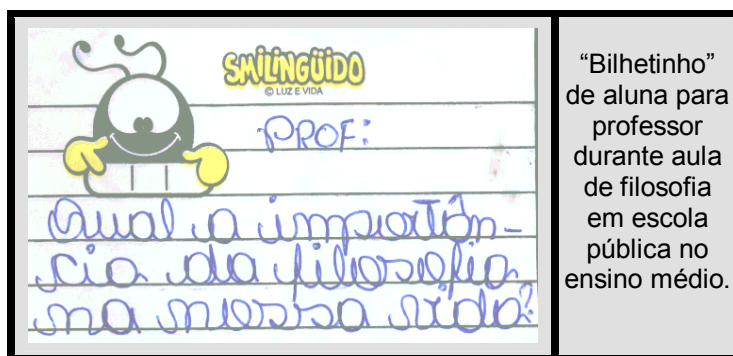 SMILINGÜIDO
© LUZ E VIDA
PROF:
Qual a importân-
cia da filosofia
na nossa vida?
“Bilhetinho”
de aluna para
professor
durante aula
de filosofia
em escola
pública no
ensino médio.